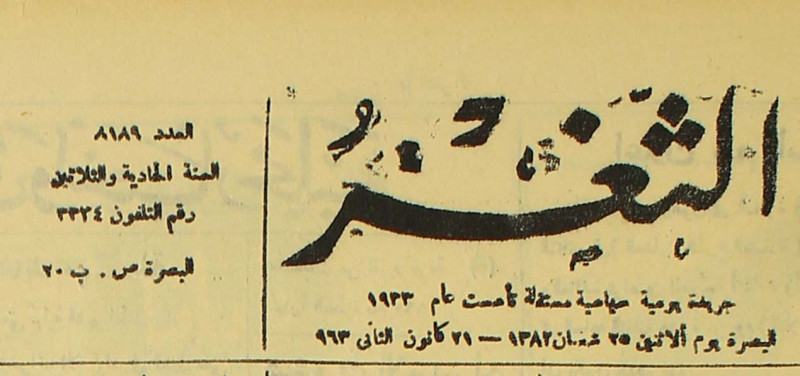 الثغر
جريدة يومية سياسية مستقلة تأسست عام ١٩٣٣
البصرة يوم ألاثنين ٢٥ شعبان ١٣٨٢ — ٢١ كانون الثاني ٩٦٣
العدد ٨١٨٩
السنة الحادية والثلاثين
رقم التلفون ٣٣٢٤
البصرة ص . ب ٢٠